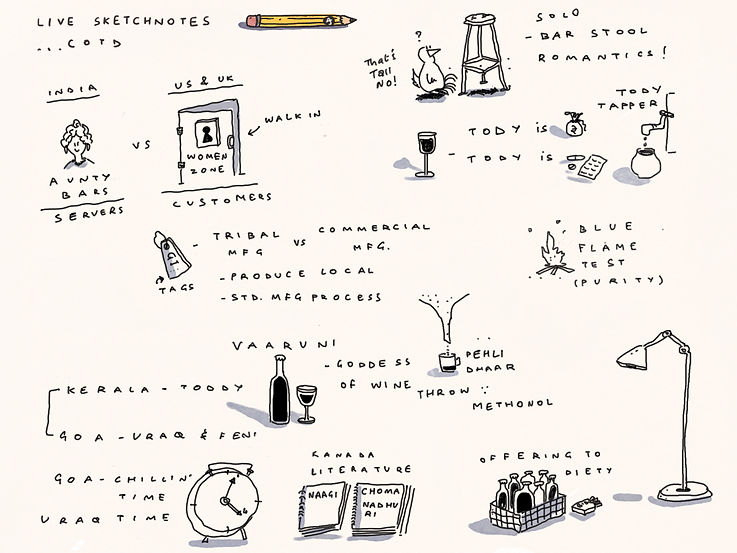 LIVE SKETCHNOTES
...COTD
SOLO
- BAR STOOL
ROMANTICS!
?
That's
TALL
NO!
INDIA
AUNTY
BARS
SERVERS
VS
US & UK
WOMEN
ZONE
CUSTOMERS
WALK IN
TODY
TAPPER
- TODY is
- TODY is
G.I.
TAGS
- TRIBAL VS COMMERCIAL
MFG MFG.
- PRODUCE LOCAL
- STD. MFG PROCESS
BLUE
FLAME
TEST
(PURITY)
VAARUNI
- GODDESS
OF WINE
PEHLI
DHAAR
THROW
METHONOL
KERALA - TODDY
GOA - URAQ & FENI
GOA - CHILLIN'
TIME
URAQ TIME
KANADA
LITERATURE
NAAGI
CHOMA
NADHU
RI
OFFERING TO
DIETY